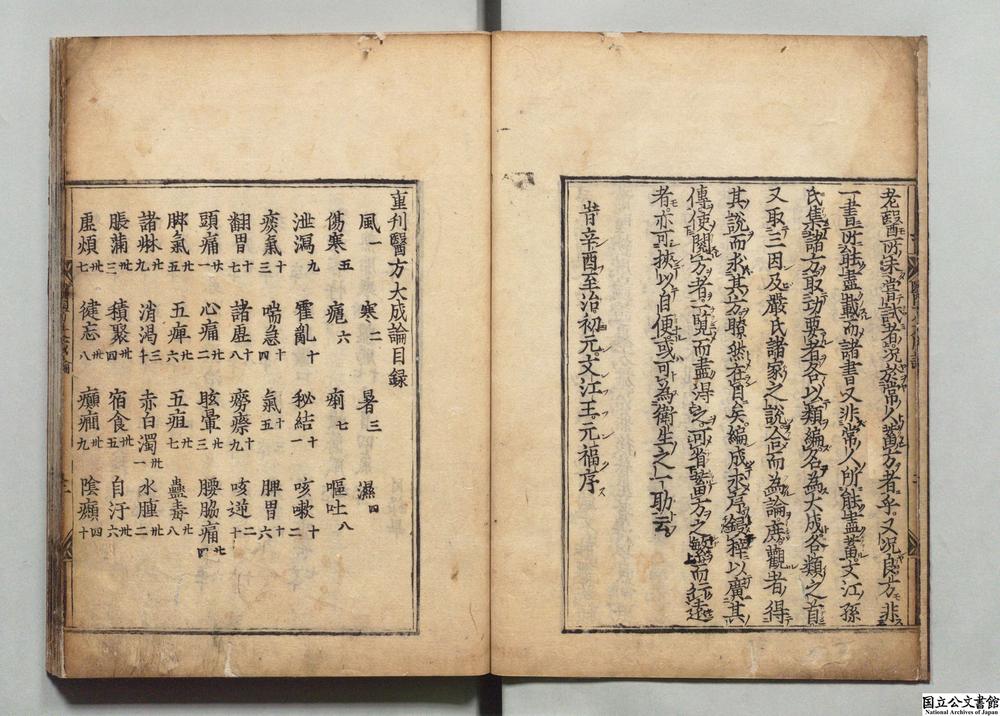 老醫所未嘗試者況於常人蓄方者乎又況良方非
一書所能盡載而諸書又非常人所能盡蓄文江孫
氏集諸方取功要者各以類編名為大成各類之首
又取三因及嚴氏諸家之說合而為論庶觀者得
其說而求其方瞭然在目矣編成求序鋟梓以廣其
傳使閱方者一覽而盡得之可省畜方之繁而行遠
者亦可挾以自便或可為衛生之一助云
旹辛酉至治初元文江王元福序
重刊醫方大成論目録
風一 寒二 暑三 濕四
傷寒五 瘧六 痢七 嘔吐八
泄瀉九 霍亂十 秘結十一 咳嗽十二
痰氣十三 喘急十四 氣十五 脾胃十六
翻胃十七 諸虛十八 癆瘵十九 咳逆二十
頭痛廿一 心痛廿二 眩暈廿三 腰脇痛廿四
脚氣廿五 五痺廿六 五疸廿七 蠱毒廿八
諸淋廿九 消渴三十 赤白濁卅一 水腫卅二
脹滿卅三 積聚卅四 宿食卅五 自汗卅六
虛煩卅七 健忘卅八 癲癇卅九 陰㿗四十
国立公文書館
National Archives of Japan